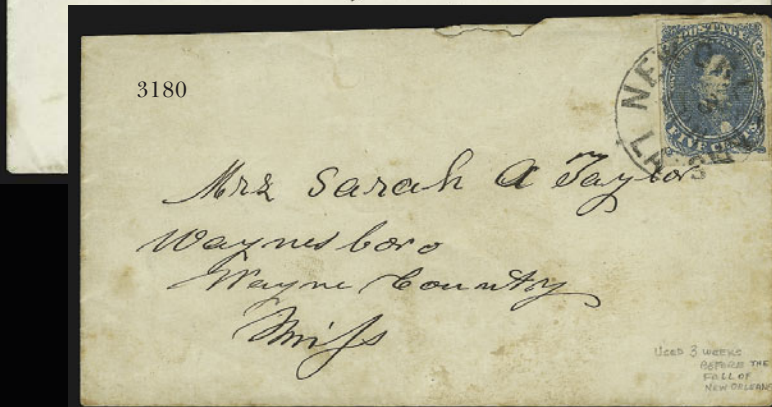 3180
NEW ORLEANS LA.
POSTAGE
FIVE CENTS
Mrs Sarah A Taylor
Waynesboro
Wayne County
Miss
USED 3 WEEKS
BEFORE THE
FALL OF
NEW ORLEANS